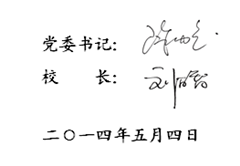 党委书记：
校 长：
二〇一四年五月四日